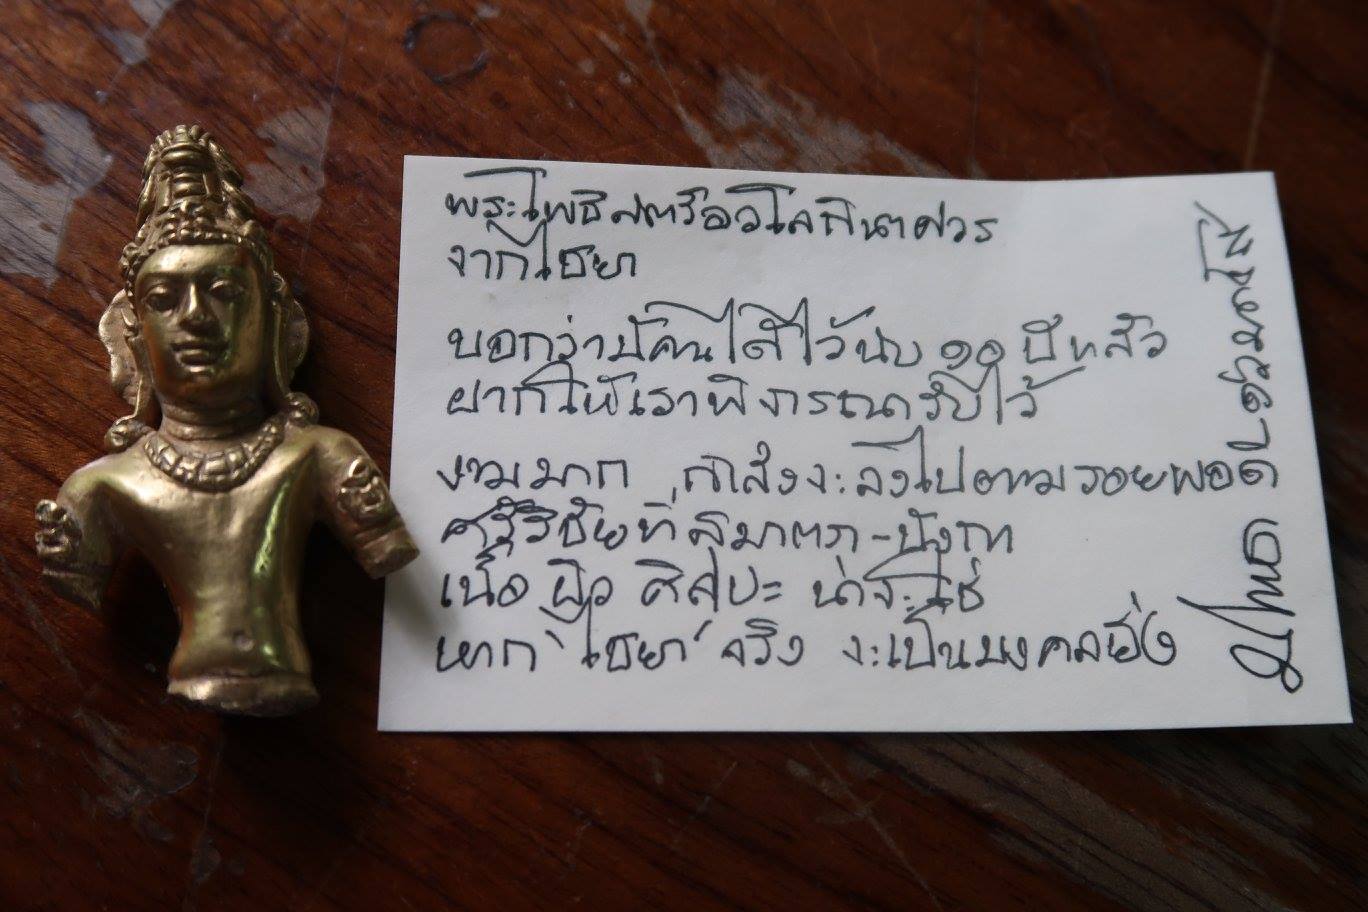 พระโพธิสตว์อวโลกินตศวร
จากไชยา
บอกว่ามีคนได้ไว้นับ ๑๐ ปีแล้ว
ฝากให้เราพิจารณารับไว้
งามมาก กำลังจะลงไปตามรอยพอดี
ศรีวิชัยที่สุมาตรา-บังกา
เนื้อ ผิว ศิลปะ น่าจะใช่
หาก 'ไชยา' จริง จะเป็นมงคลยิ่ง